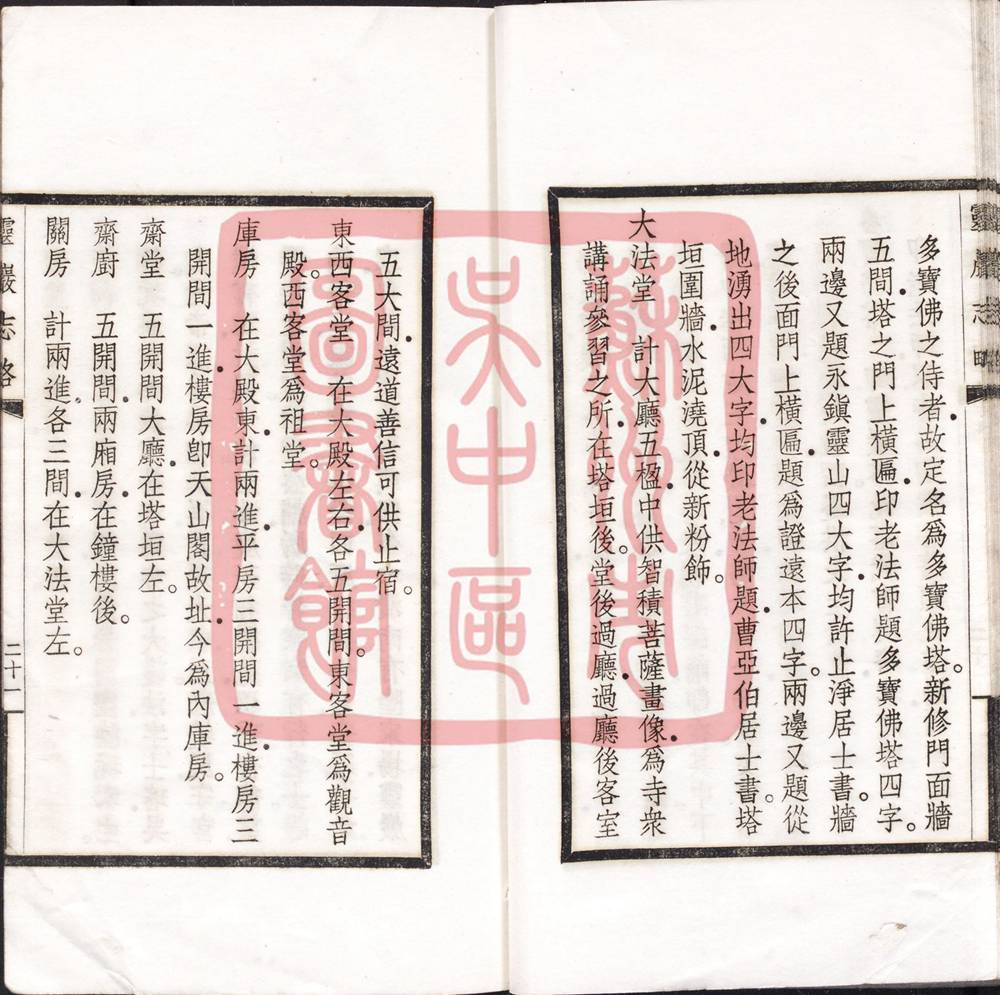 靈巖志略
多寶佛之侍者．故定名爲多寶佛塔。新修門面牆
五間．塔之門上橫匾．印老法師題多寶佛塔四字。
兩邊又題永鎭靈山四大字．均許止淨居士書．牆
之後面門上橫匾．題爲證遠本四字。兩邊又題從
地湧出四大字．均印老法師題．曹亞伯居士書。塔
垣圍牆．水泥澆頂．從新粉飾。
大法堂　計大廳五楹．中供智積菩薩畫像．爲寺衆
講誦參習之所．在塔垣後。堂後過廳．過廳後客室
五大間．遠道善信可供止宿。
東西客堂　在大殿左右．各五開間。東客堂爲觀音
殿。西客堂爲祖堂。
庫房　在大殿東．計兩進．平房三開間一進．樓房三
開間一進．樓房卽天山閣故址．今爲內庫房。
齋堂　五開間大廳．在塔垣左。
齋廚　五開間．兩廂房．在鐘樓後。
關房　計兩進．各三間．在大法堂左。
靈巖志略
二十一
蘇州市
吳中區
圖書館